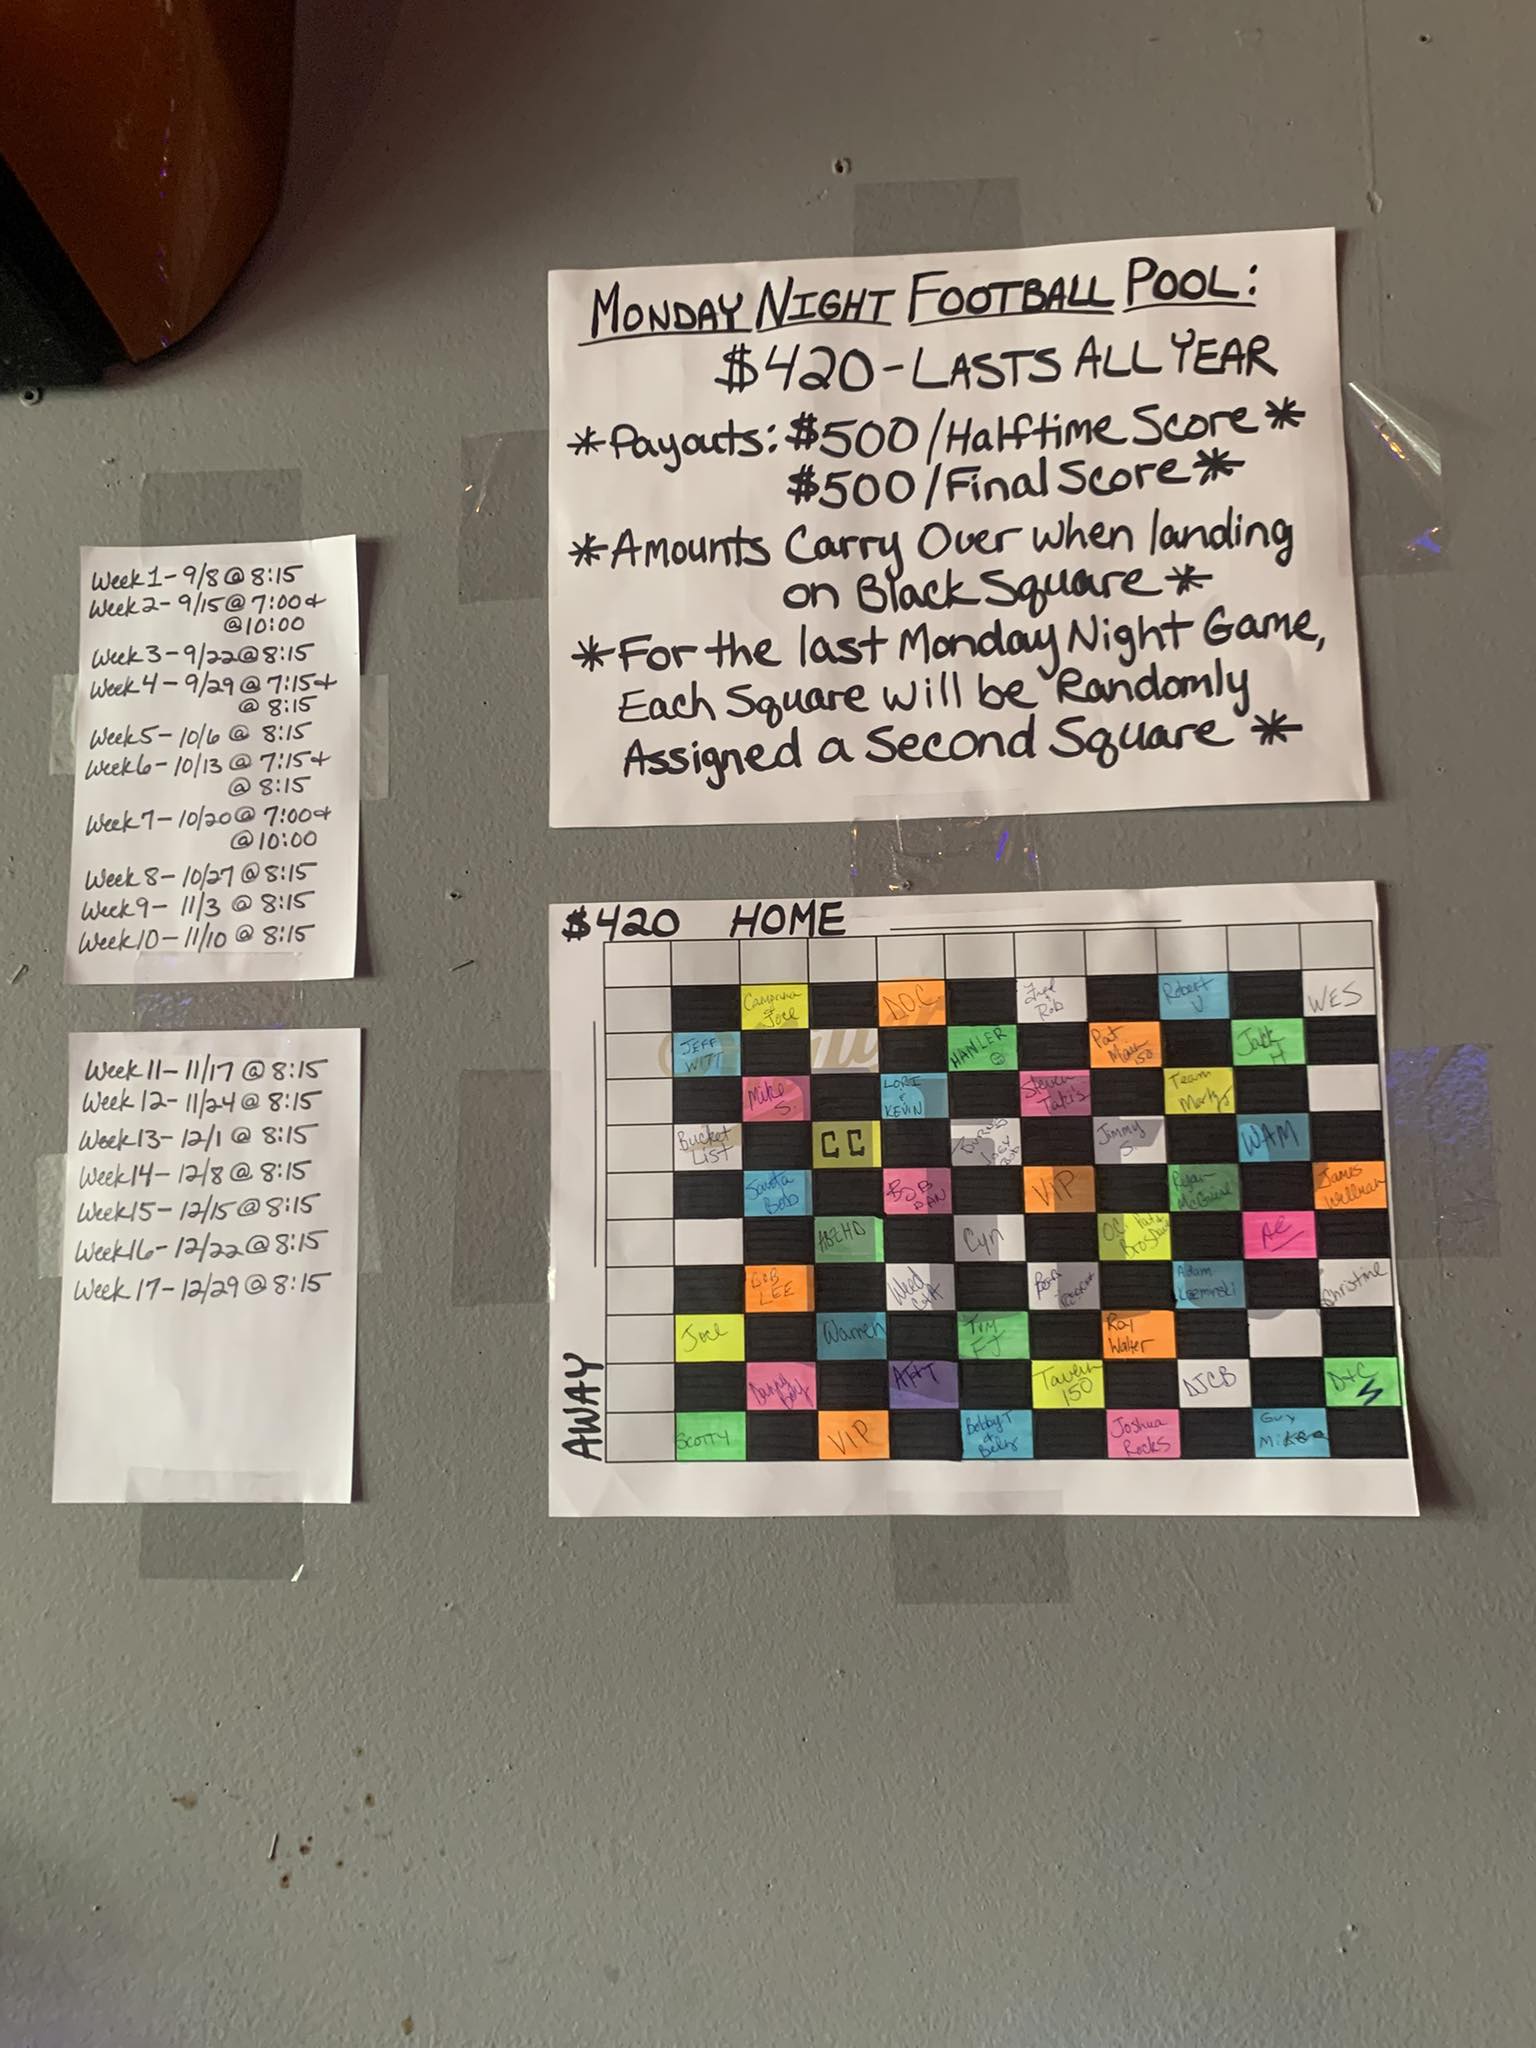 MONDAY NIGHT FOOTBALL POOL:
$420-LASTS ALL YEAR
*Payouts: $500/Halftime Score*
$500/Final Score*
*Amounts Carry Over when landing
on Black Square*
*For the last Monday Night Game,
Each Square will be Randomly
Assigned a Second Square*
Week 1-9/8@8:15
Week 2-9/15@7:00+
@10:00
Week 3-9/22@8:15
Week 4-9/29@7:15+
@8:15
Week 5-10/6@8:15
Week 6-10/13@7:15+
@8:15
Week 7-10/20@7:00+
@10:00
Week 8-10/27@8:15
Week 9-11/3@8:15
Week 10-11/10@8:15
Week 11-11/17@8:15
Week 12-11/24@8:15
Week 13-12/1@8:15
Week 14-12/8@8:15
Week 15-12/15@8:15
Week 16-12/22@8:15
Week 17-12/29@8:15
$420 HOME
AWAY
Joee
D.O.C.
Fred
Rob
Robert
V
WES
JEFF
WITT
HANLER
Pat
150
Jack
H
Mike
S.
LORI
&
KEVIN
Steven
Takis
Team
Marky
Bucket
List
CC
Jimmy
S.
WAM
Santa
Bob
BOB
DAN
VIP
Ryan
McGuire
James
Wellman
ABEHD
Cyn
O.C.
AC
BOB
LEE
Weed
Adam
Christine
Joel
Warren
Tim
FJ
Ray
Walter
Danny
Boy
AFTT
Tavern
150
DJCB
D+C
SCOTTY
VIP
Bobby T
&
Joshua
Rocks
Guy